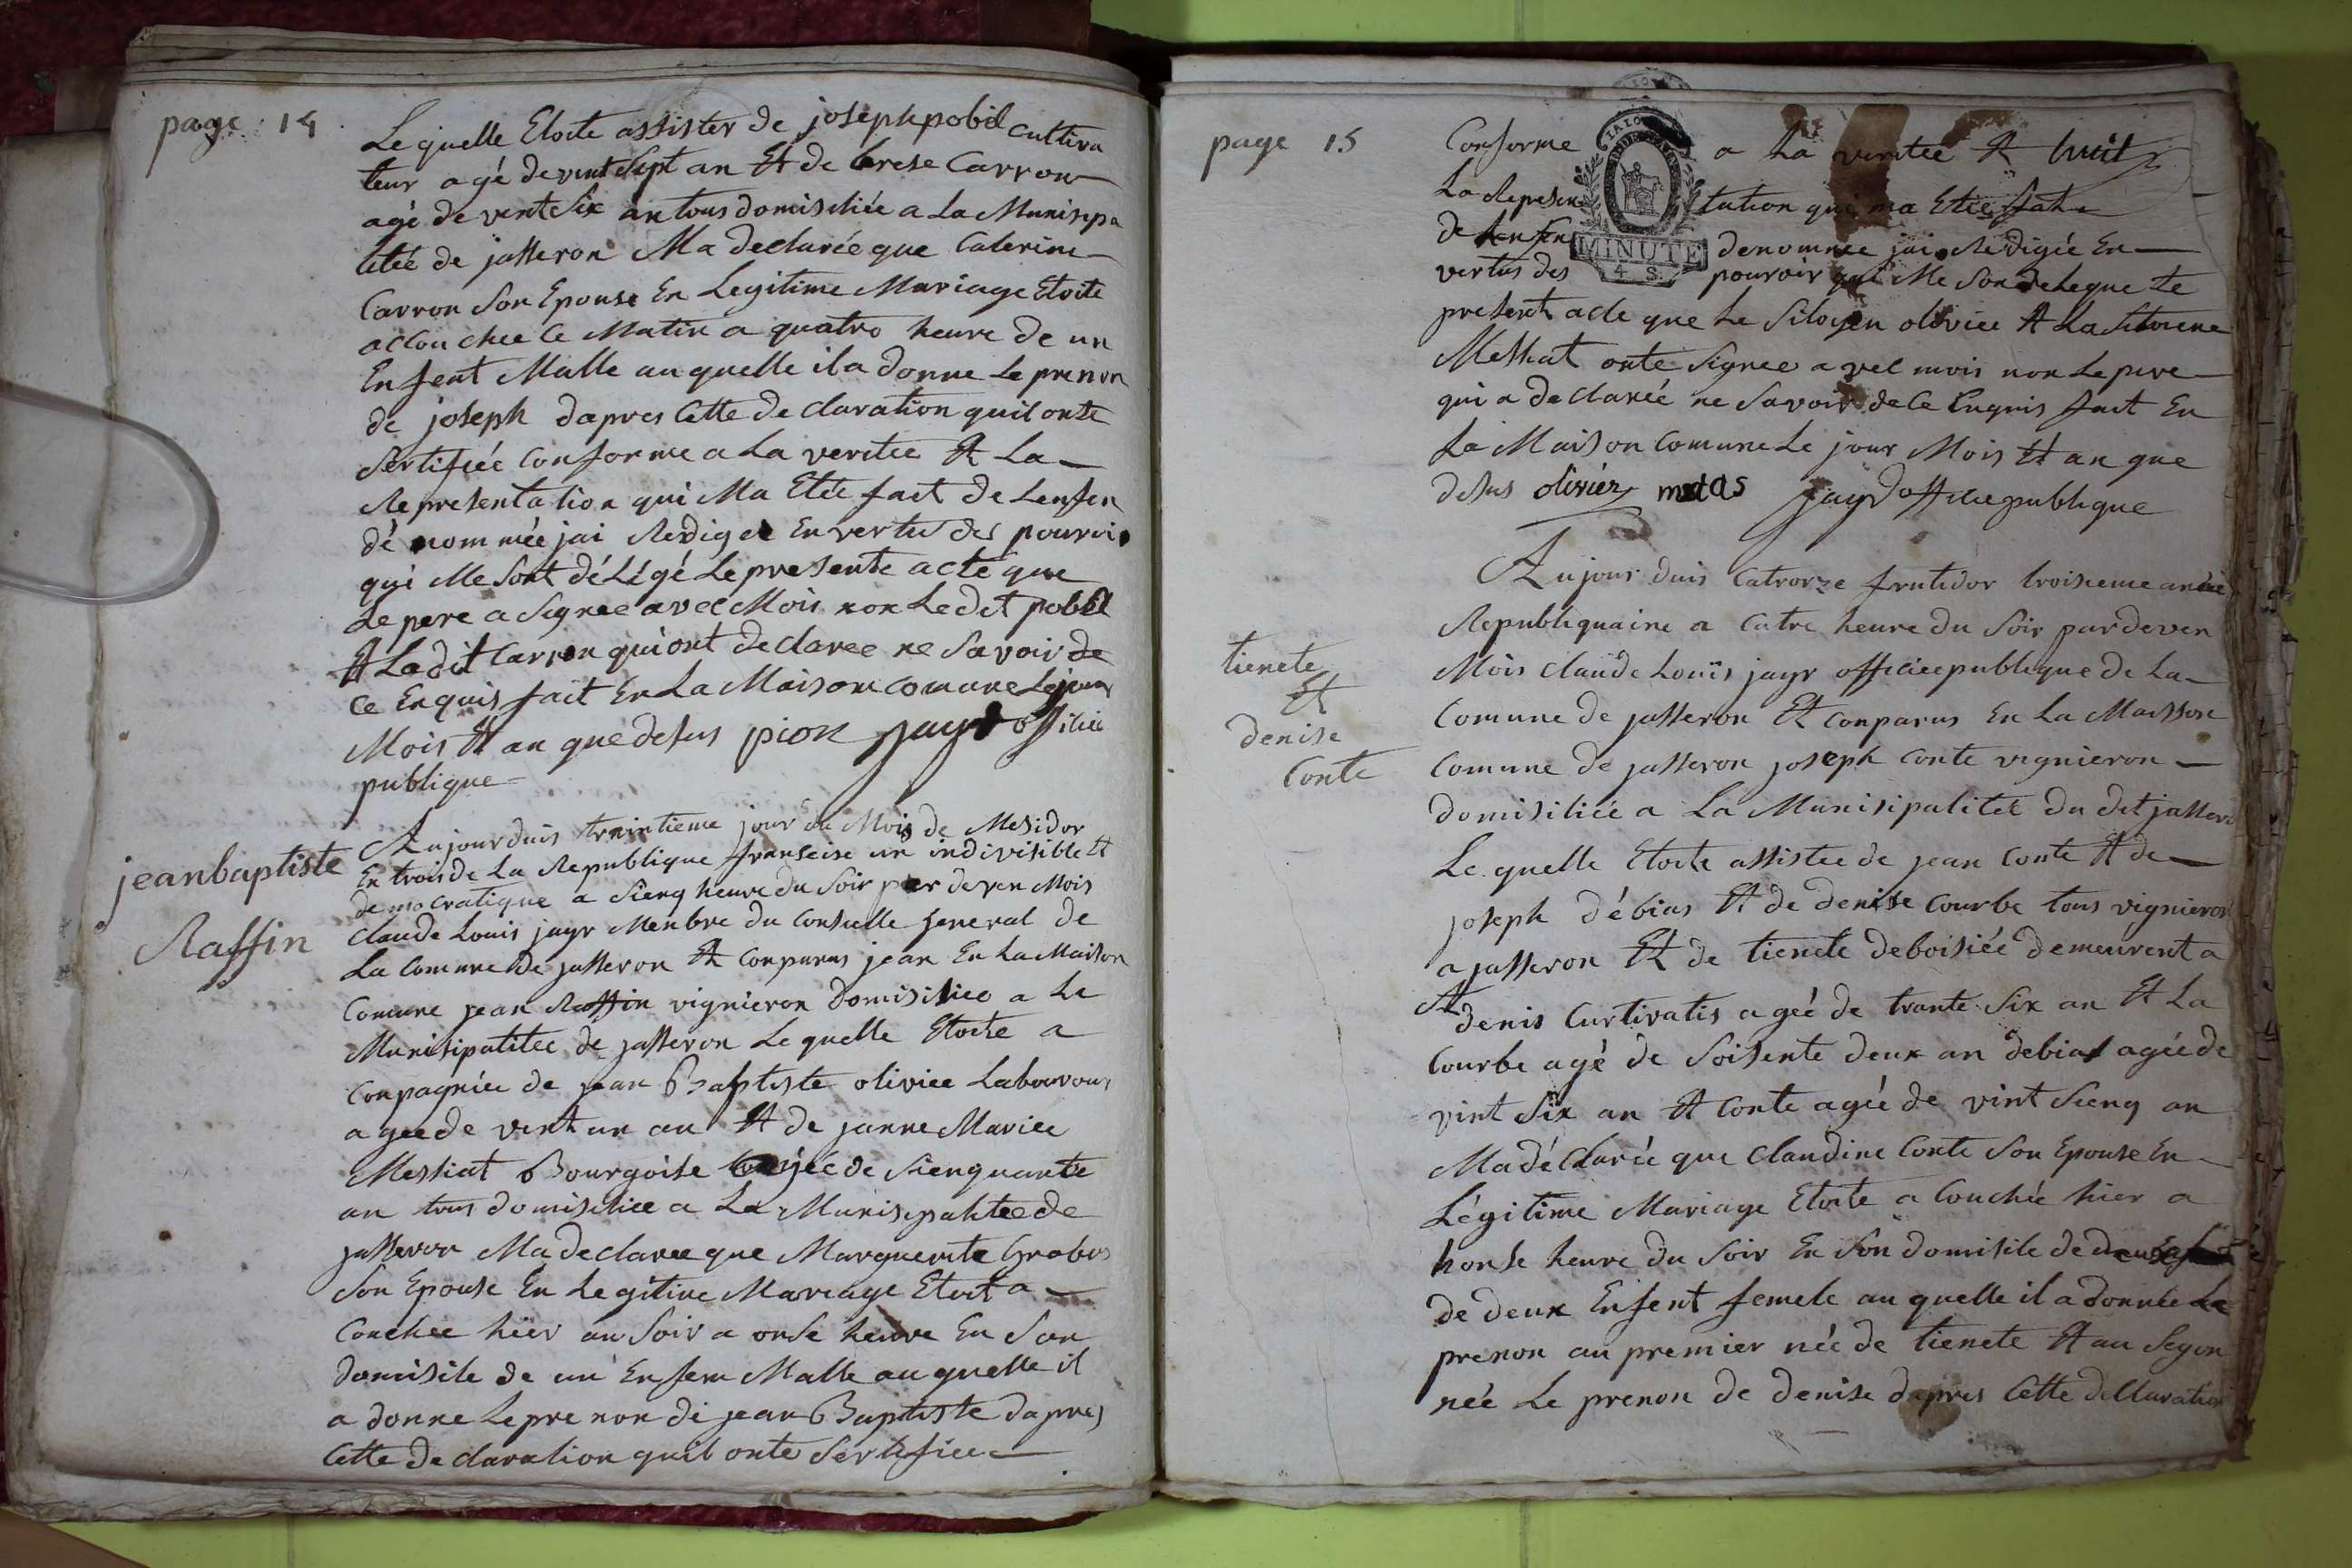 page 14
Le quelle Etoite assister de joseph pobel cultiva
teur agé de vint Sept an Et de terese Carron
agé de vent Six an tous domisiliée a La Munisipa
litée de jasseron Ma declarée que Caterine
Carron Son Epouse En Legitime Mariage Etoite
acCouchee Ce Matin a quatro heure de un
Enfent Malle au quelle il a donne Le prenon
de joseph dapres Cette de claration quil onte
Sertifiée Conforme a La veritee Et La
Representation qui Ma Etée fait de Lenfen
dé nommée jai Redigée En vertus des pouroir
qui Me Sont déLégé Le presente acte que
Le pere a Signee avec Mois non Le dit pobel
Et La dit Carron qui ont declaree ne Savoir de
Ce Enquis fait En La Maison comune Le jour
Mois Et an que desus pion jayr offisiée
publique
jeanbaptiste
Raffin
Aujourduis trointieme jour du Mois de Mesidor
En trois de La Republique franseise un indivisible Et
democratique a Sienq heure du Soir par deven Mois
Claude Louis jayr Menbre du Conseille general de
La Comune de jasseron Et Conparus jean En La Maison
Comune jean Raffin vignieron domisiliee a La
Munisipalitee de jasseron Le quelle Etoite a
Conpagniée de jean Baptiste oliviee Labourour
agee de vent un an Et de janne Mariee
Messiat Bourgoise agée de Sienquante
an tous domisiliee a La Munisipalitee de
jasseron Ma declaree que Marguerite Grobos
Son Epouse En Legitime Mariage Etoit a
Couchee hier au Soir a onse heure En Son
domisile de un Enfen Malle au quelle il
a donne Le prenon de jean Baptiste dapres
Cette declaration quil onte Sertifiee
page 15
Conforme a La veritee Et
La Represen tation qui ma Etée fate
de Lenfen denommee jai Redigée En
MINUTE
4 S.
vertus des pouroir qui Me Son deLegue Le
present acte que Le Sitoyen oliviee Et La Sitoiene
Messiat onte Signee avec mois non Le pere
qui a declarée ne Savoir de Ce Enquis fait En
La Maison Comune Le jour Mois Et an que
desus olivier jayr officiee publique
Aujour duis Catrorze frutidor troisieme année
Republiquaine a Catre heure du Soir pardeven
Mois claude Louis jayr officiee publique de La
Comune de jasseron Et Conparus En La Maisson
Comune de jasseron joseph Conte vignieron
domisiliée a La Munisipalitee du dit jasseron
tienete
Et
denise
Conte
Le quelle Etoite assistee de jean Conte Et de
joseph débias Et de denise Courbe tous vignieron
a jasseron Et de tienete deboisiée demeurent a
Et
denis Curtivatis ageé de trante Six an Et La
Courbe agé de Soisente deux an debias agée de
vint Six an Et Conte agée de vint Sienq an
Ma déClarée que Claudine Conte Son Epouse En
Légitime Mariage Etoite a Couchée hier a
honse heure du Soir En Son domisile de
de deux Enfent femele au quelle il a donnée Le
prenon au premier née de tienete Et au Segon
née Le prenon de denise dapres Cette declaration